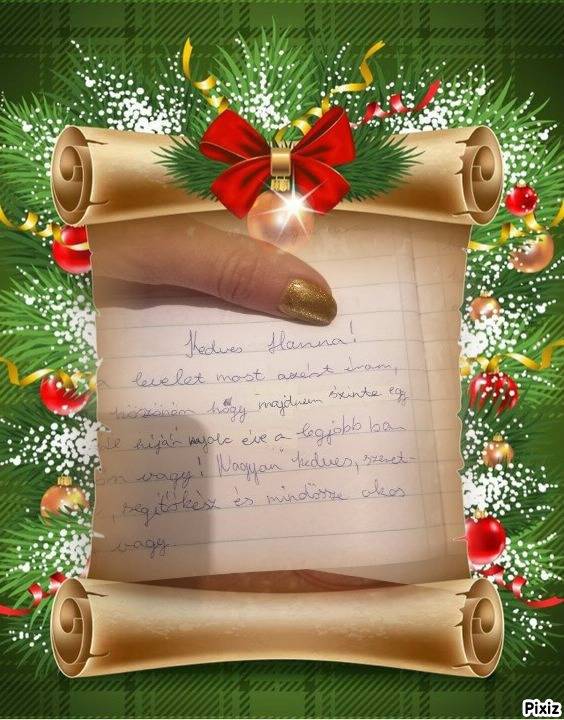 Kedves Hanna!
levelet most azért írom,
köszönöm hogy majdnem szinte egy
híján nyolc éve a legjobb
vagy! Nagyon kedves, szeret-
, segítőkész és mindössze okos
vagy
Pixiz